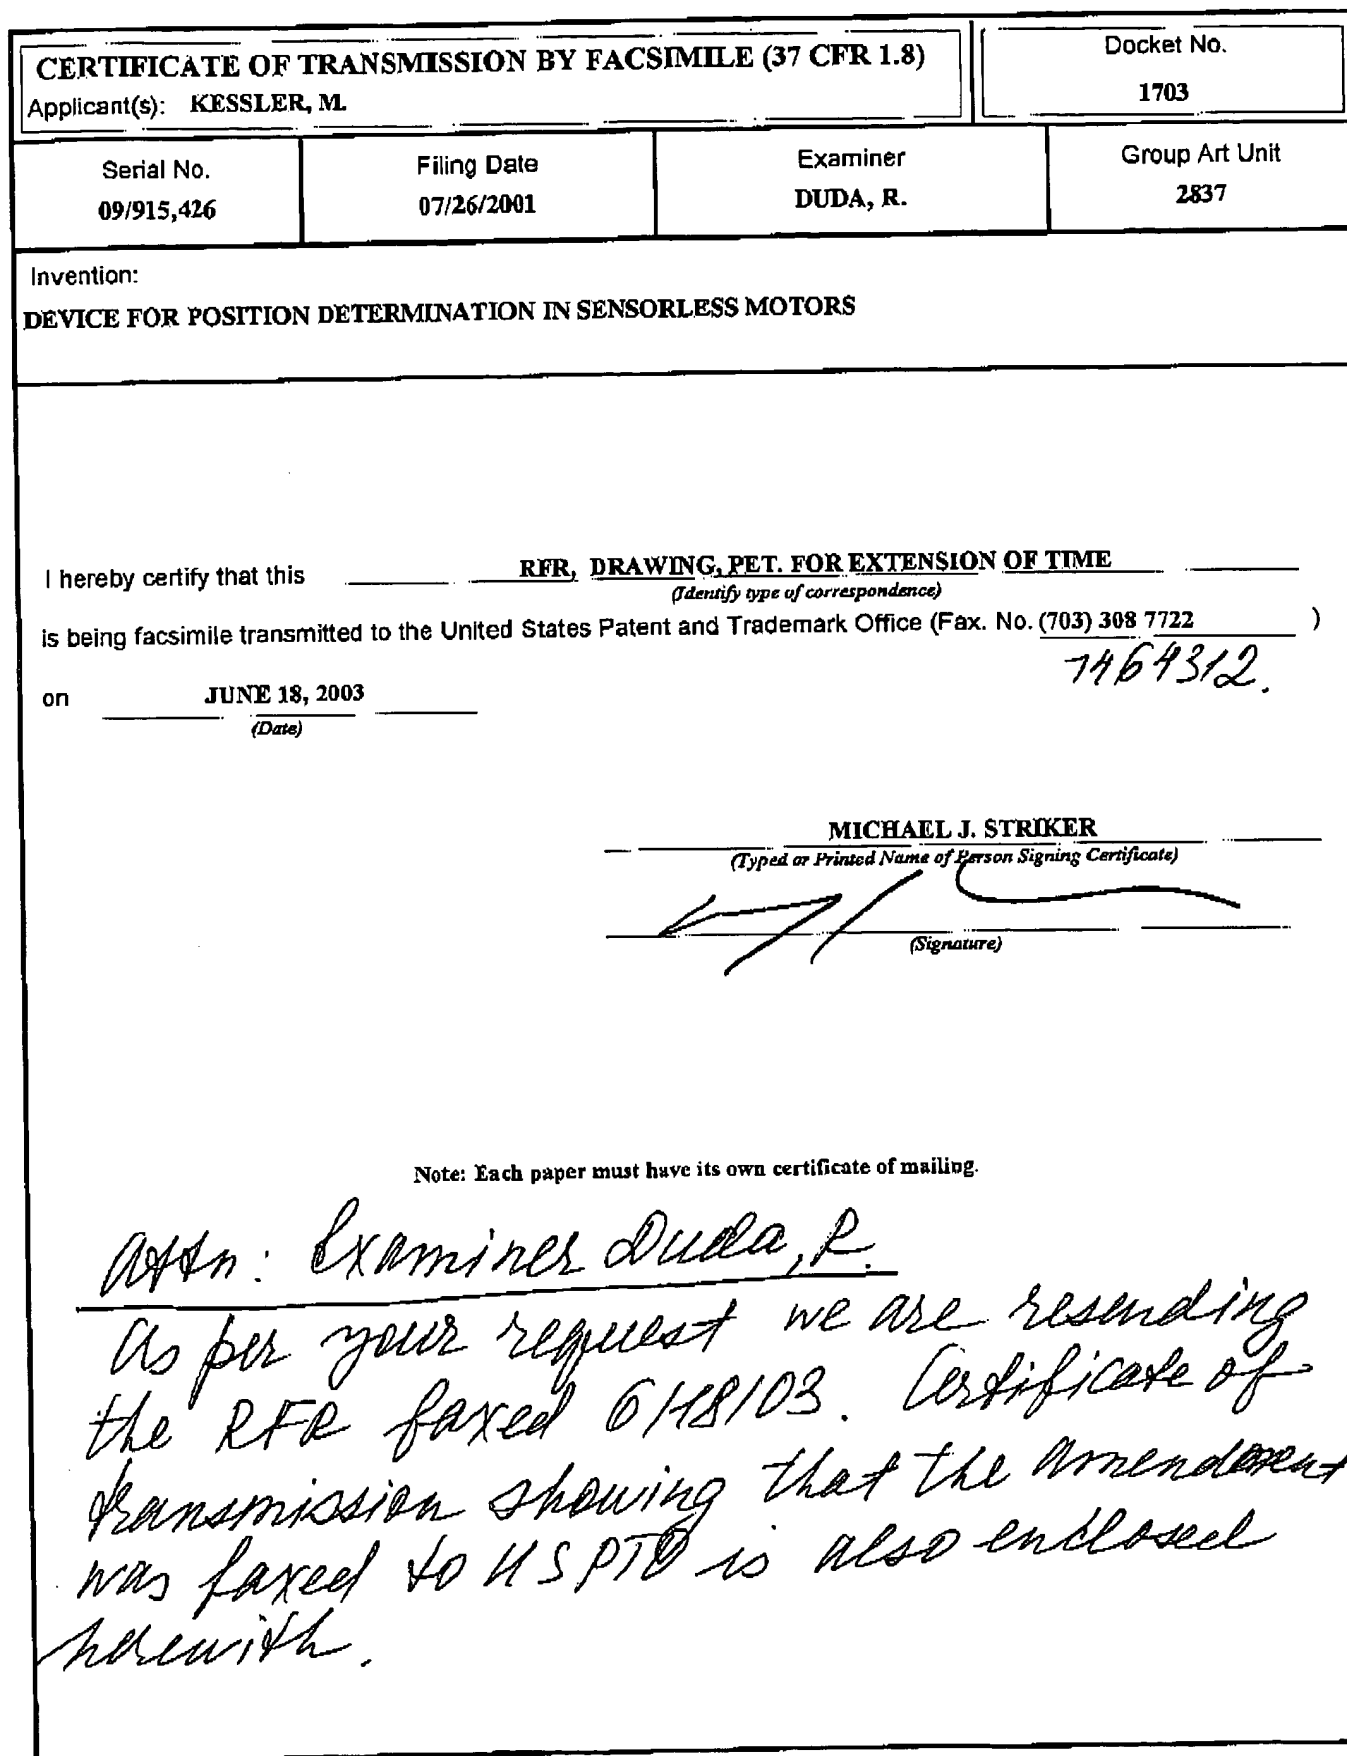 CERTIFICATE OF TRANSMISSION BY FACSIMILE (37 CFR 1.8)
Applicant(s): KESSLER, M.
Docket No.
1703
Serial No.
09/915,426
Filing Date
07/26/2001
Examiner
DUDA, R.
Group Art Unit
2837
Invention:
DEVICE FOR POSITION DETERMINATION IN SENSORLESS MOTORS
I hereby certify that this RFR, DRAWING, PET. FOR EXTENSION OF TIME
(Identify type of correspondence)
is being facsimile transmitted to the United States Patent and Trademark Office (Fax. No. (703) 308 7722 )
7464312.
on JUNE 18, 2003
(Date)
MICHAEL J. STRIKER
(Typed or Printed Name of Person Signing Certificate)
(Signature)
Note: Each paper must have its own certificate of mailing.
Attn: Examiner Duda, R.
As per your request we are resending
the RFR faxed 6/18/03. Certificate of
transmission showing that the Amendment
was faxed to USPTO is also enclosed
herewith.